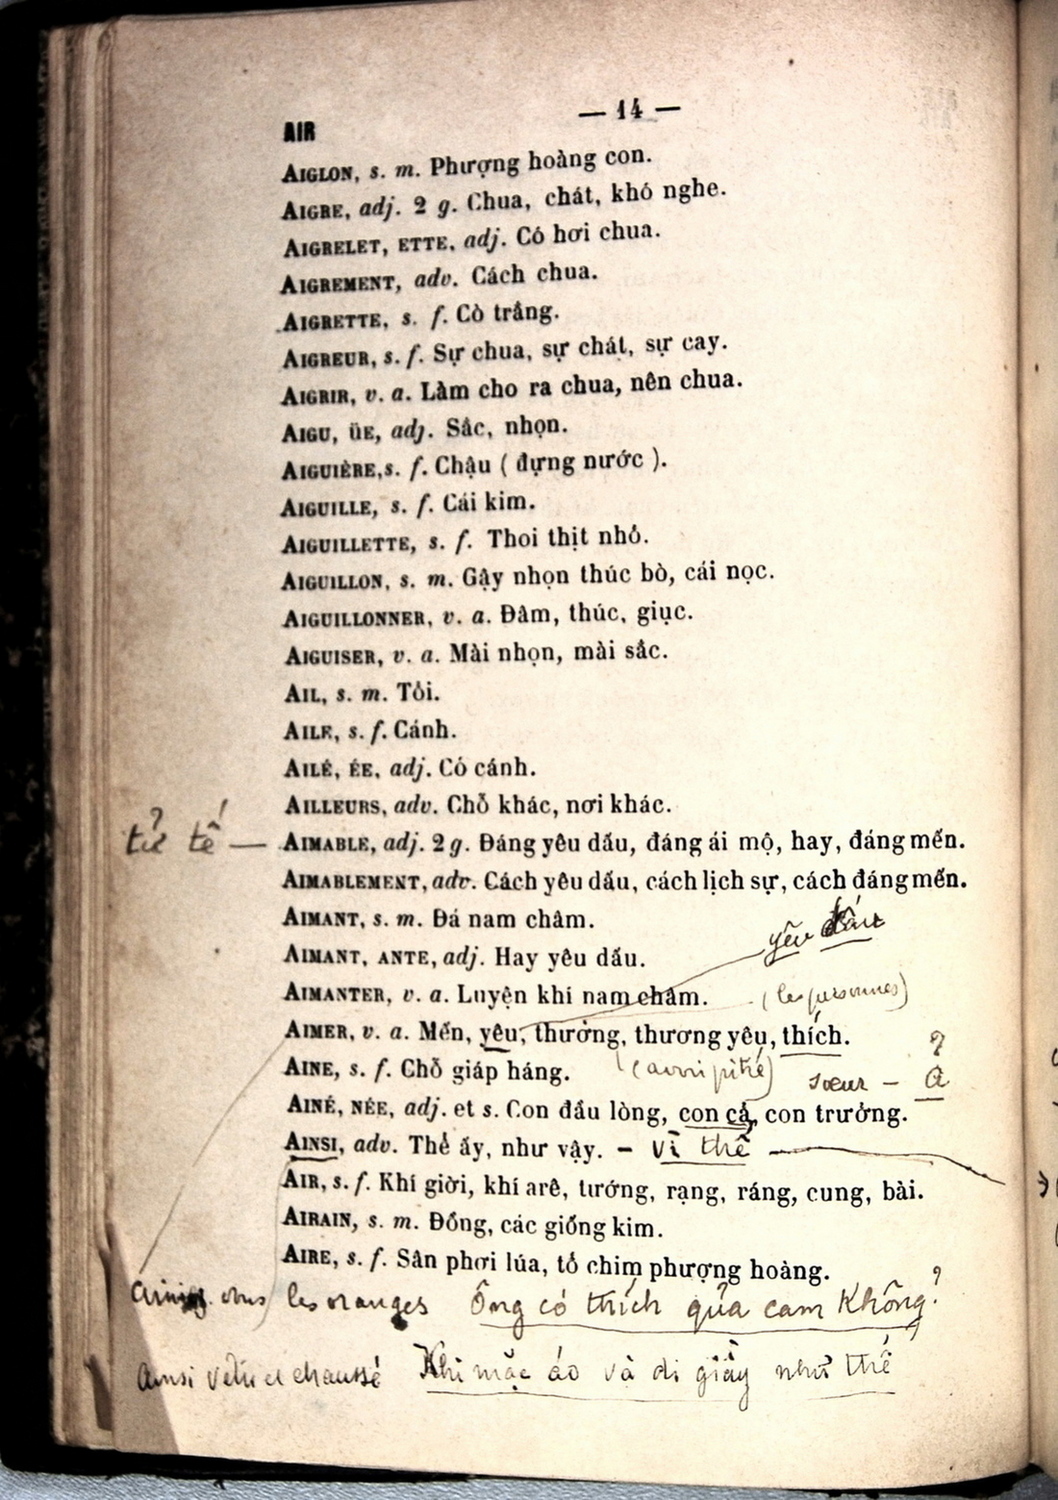 — 14 —
AIR
AIGLON, s. m. Phượng hoàng con.
AIGRE, adj. 2 g. Chua, chát, khó nghe.
AIGRELET, ETTE, adj. Có hơi chua.
AIGREMENT, adv. Cách chua.
AIGRETTE, s. f. Cò trắng.
AIGREUR, s. f. Sự chua, sự chát, sự cay.
AIGRIR, v. a. Làm cho ra chua, nên chua.
AIGU, ÜE, adj. Sắc, nhọn.
AIGUIÈRE, s. f. Chậu ( đựng nước ).
AIGUILLE, s. f. Cái kim.
AIGUILLETTE, s. f. Thoi thịt nhỏ.
AIGUILLON, s. m. Gậy nhọn thúc bò, cái nọc.
AIGUILLONNER, v. a. Đâm, thúc, giục.
AIGUISER, v. a. Mài nhọn, mài sắc.
AIL, s. m. Tỏi.
AILE, s. f. Cánh.
AILÉ, ÉE, adj. Có cánh.
AILLEURS, adv. Chỗ khác, nơi khác.
tử tế — AIMABLE, adj. 2 g. Đáng yêu dấu, đáng ái mộ, hay, đáng mến.
AIMABLEMENT, adv. Cách yêu dấu, cách lịch sự, cách đáng mến.
AIMANT, s. m. Đá nam châm.
yêu dấu
AIMANT, ANTE, adj. Hay yêu dấu.
AIMANTER, v. a. Luyện khí nam châm. (les personnes)
AIMER, v. a. Mến, yêu, thưởng, thương yêu, thích.
AINE, s. f. Chỗ giáp háng. (avoir pitié) sœur — Ả
AINÉ, NÉE, adj. et s. Con đầu lòng, con cả, con trưởng.
AINSI, adv. Thể ấy, như vậy. – vì thế
AIR, s. f. Khí giời, khí arê, tướng, rạng, ráng, cung, bài.
AIRAIN, s. m. Đồng, các giống kim.
AIRE, s. f. Sân phơi lúa, tổ chim phượng hoàng.
aimez vous les oranges Ông có thích qủa cam không?
ainsi vêtu et chaussé Khi mặc áo và đi giầy như thế